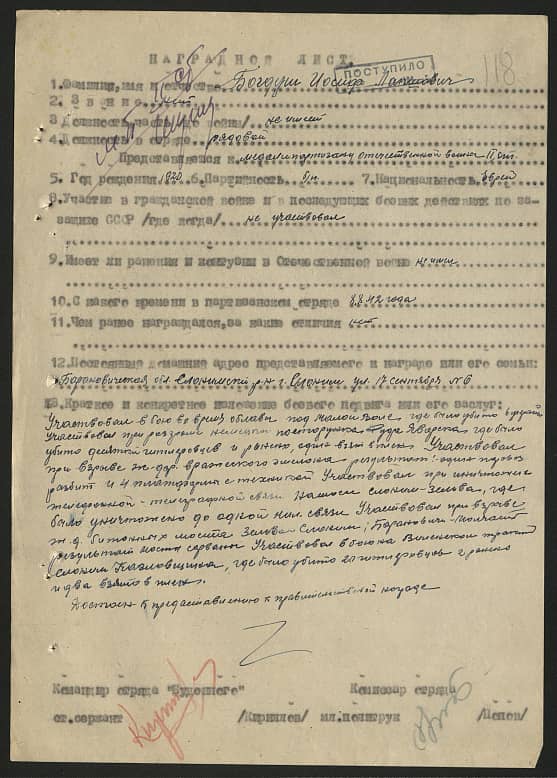 НАГРАДНОЙ ЛИСТ.
ПОСТУПИЛО
118
1. Фамилия, имя и отчество Богдуш Иосиф
2. Звание нет
3 Должность не имел
4 Должность в отряде рядовой
Представляется к медали партизану отечественной войны II ст.
5. Год рождения 1920 6. Партийность б/п 7. Национальность еврей
8. Участие в гражданской войне и в последующих боевых действиях по за-
защите СССР /где когда/ не участвовал
9. Имеет ли ранения и контузии в Отечественной войне не имеет
10. С какого времени в партизанском отряде 8.8.42 года
11. Чем ранее награждался, за какие отличия нет
12. Постоянный домашний адрес представляемого к награде или его семьи:
Барановическая обл Слонимский р-н г. Слоним ул. 17 сентября № 6
13. Краткое и конкретное изложение боевого подвига или его заслуг:
Участвовал в бою во время облавы под Малой Воле где было убито
Участвовал при разгроме немецкого Руда Яварска где было
убито десятой гитлеровцев и ранено, один взят в плен Участвовал
при взрыве жел-дор. вражеского эшелона результат: один паровоз
разбит и 4 платформы с техникой Участвовал при уничтожении
телефонной - телеграфной связи На шоссе Слоним-Зельва, где
было уничтожено до одной кил. связи Участвовал при взрыве
ж.д. бетонных моста Зельва Слоним; Баранович-Молчадь
результат мосты сорваны Участвовал в бою на Виленском тракте
Слоним Козловщина, где было убито 21 гитлеровцы ранено
и два взято в плен.
Достоин к представлению к правительственной награде
Командир отряда "Буденного" Комиссар отряда
ст. сержант /Кириллов/ мл. политрук /Попов/